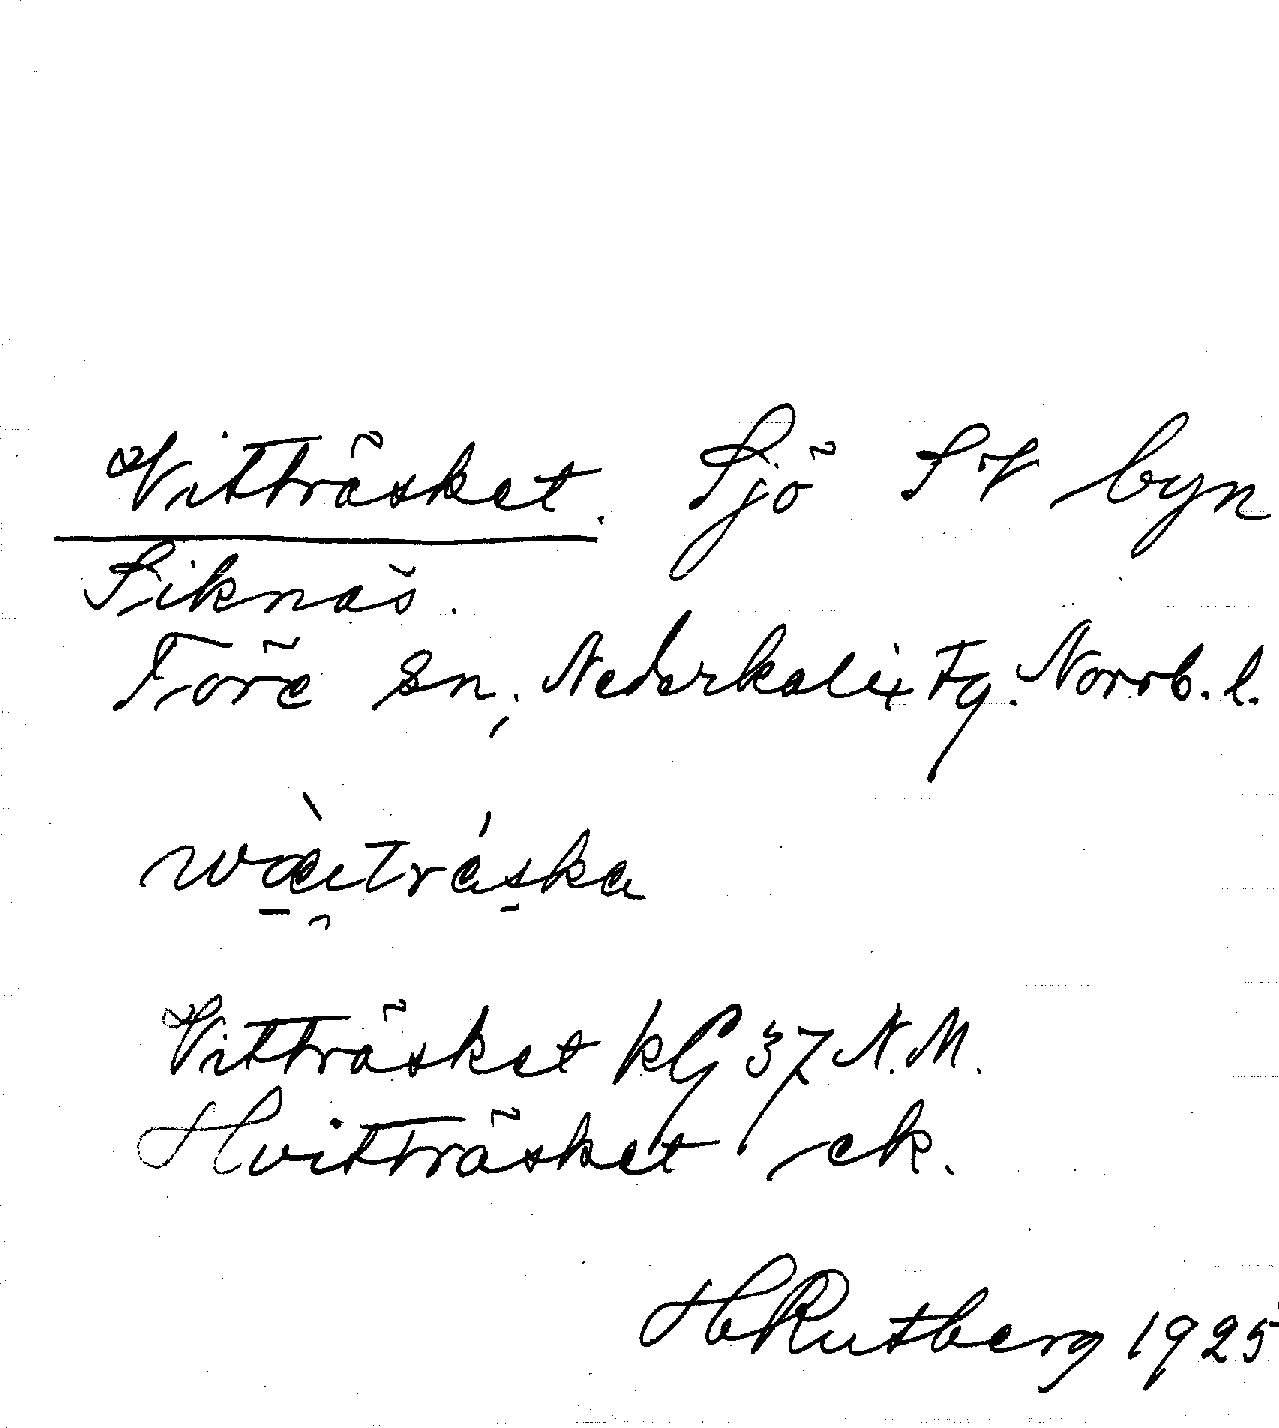 Vitträsket. Sjö SV byn
Siknäs.
Töre sn, Nederkalix tg. Norrb. l.
Vitträsket kG 37 N.M.
Hvitträsket ek.
H Rutberg 1925